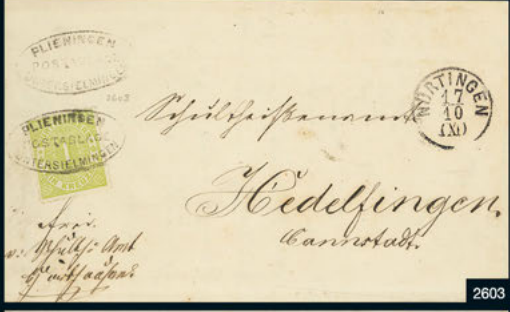 PLIENINGEN
POSTABLAGE
UNTERSIELMINGEN
2603
PLIENINGEN
POSTABLAGE
UNTERSIELMINGEN
NÜRTINGEN
17
10
(XI)
Schultheißenamt
Hedelfingen.
Cannstadt.
frei.
v. Schulth. Amt
2603